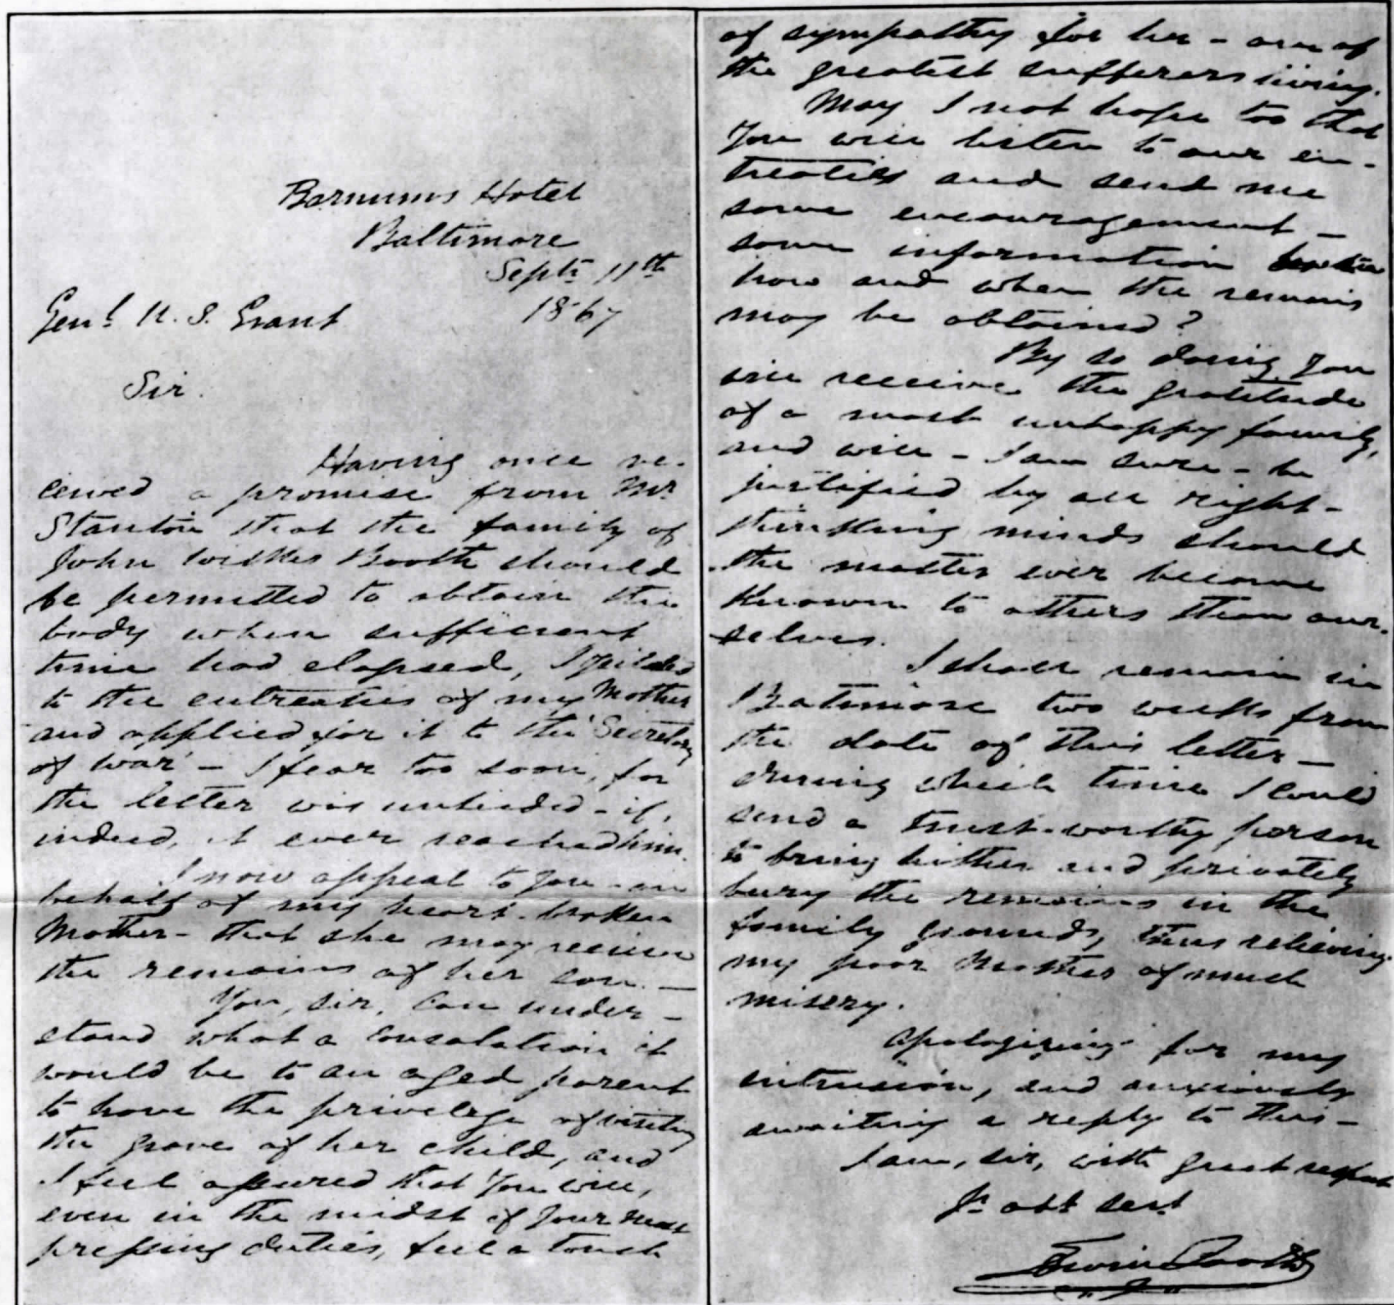 Barnums Hotel
Baltimore
Septr 11th
1867
Genl U. S. Grant
Sir.
Having once re-
ceived a promise from Mr
Stanton that the family of
John Wilkes Booth should
be permitted to obtain the
body when sufficient
time had elapsed, I yielded
to the entreaties of my Mother
and applied for it to the 'Secretary
of War' - I fear too soon, for
the letter was unheeded - if,
indeed, it ever reached him.
I now appeal to you - on
behalf of my heart-broken
Mother - that she may receive
the remains of her son. -
You, sir, can under -
stand what a consolation it
would be to an aged parent
to have the privilege of visiting
the grave of her child, and
I feel assured that you will,
even in the midst of your most
pressing duties, feel a touch
of sympathy for her - one of
the greatest sufferers living.
May I not hope too that
you will listen to our en-
treaties and send me
some encouragement -
some information
how and when the remains
may be obtained?
By so doing you
will receive the gratitude
of a most unhappy family,
and will - I am sure - be
justified by all right-
thinking minds should
the matter ever become
known to others than our-
selves.
I shall remain in
Batimore two weeks from
the date of this letter -
during which time I could
send a trust-worthy person
to bring hither and privately
bury the remains in the
family grounds, thus relieving
my poor Mother of much
misery.
Apologizing for my
intrusion, and anxiously
awaiting a reply to this -
I am, sir, with great respect
Yr obt servt
Edwin Booth